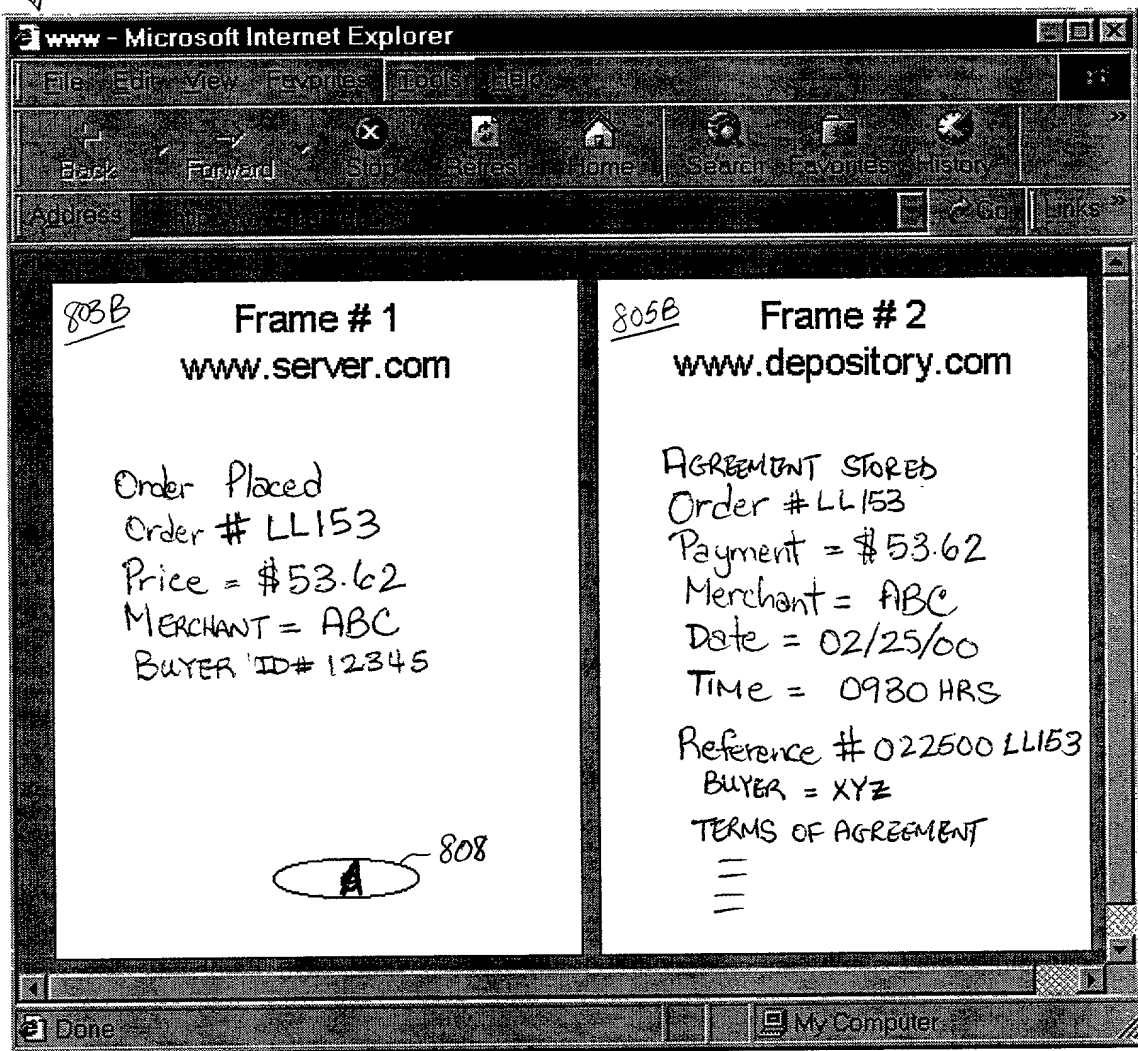 www - Microsoft Internet Explorer
File Edit View Favorites Tools Help
Back Forward Stop Refresh Home Search Favorites History »
Address Go Links »
803B
Frame # 1
www.server.com
Order Placed
Order # LL153
Price = $53.62
MERCHANT = ABC
BUYER ID# 12345
A
808
805B
Frame # 2
www.depository.com
AGREEMENT STORED
Order #LL153
Payment = $53.62
Merchant = ABC
Date = 02/25/00
TIME = 0930 HRS
Reference # 022500 LL153
BUYER = XYZ
TERMS OF AGREEMENT
Done My Computer